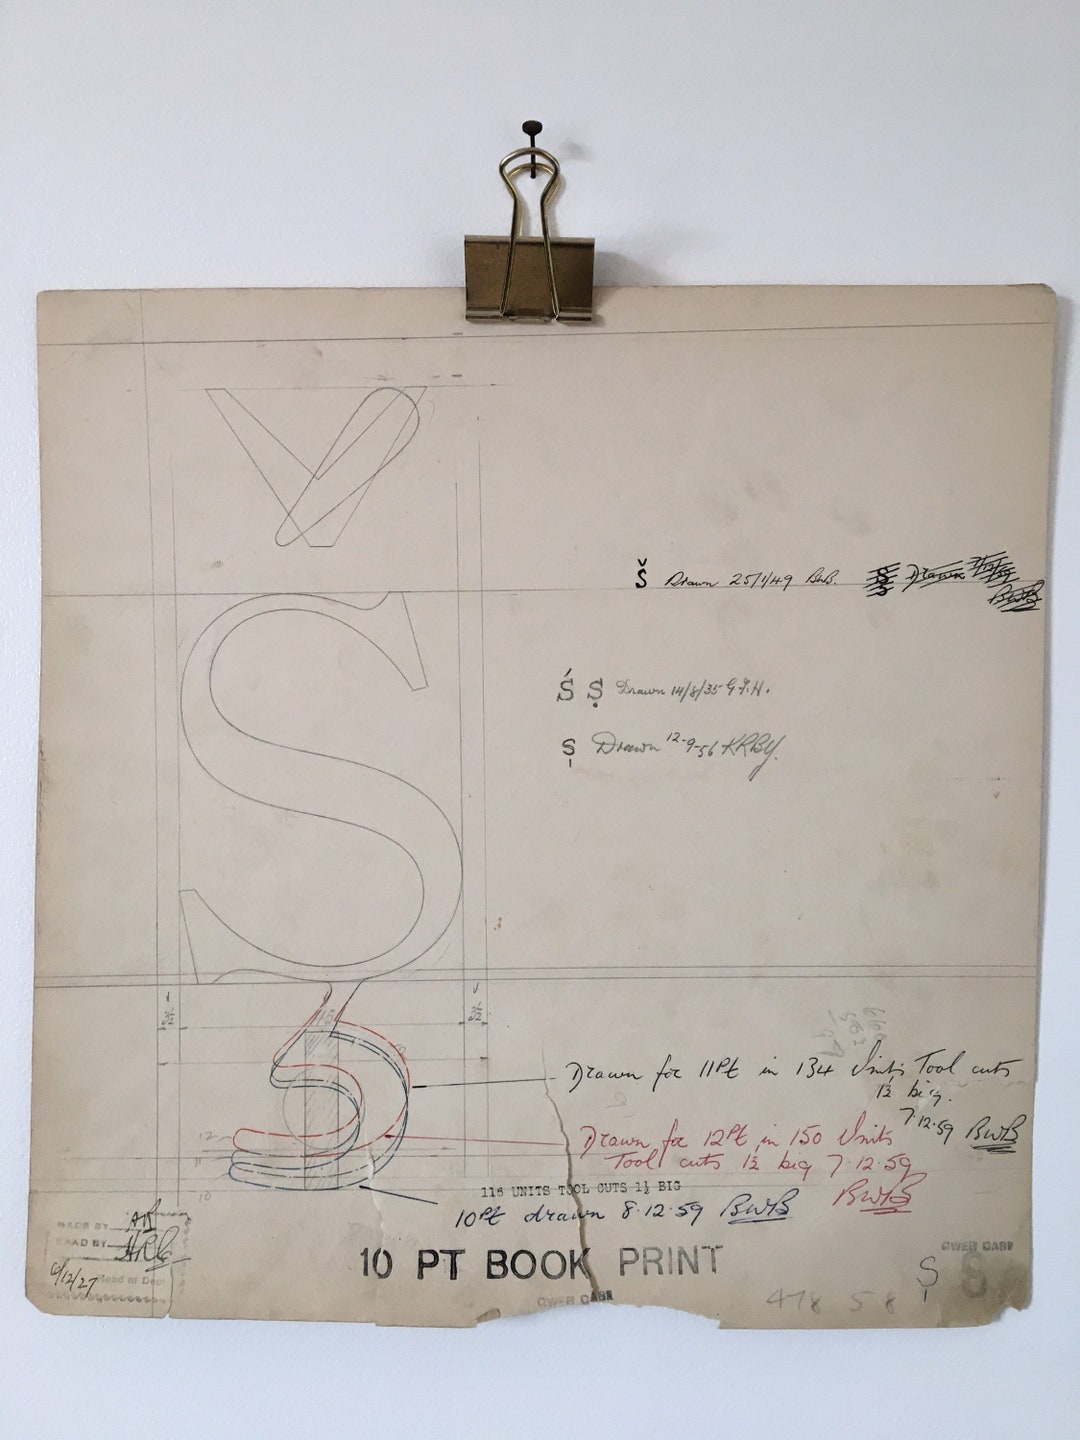 S
Š Drawn 25/1/49 BWB.
Ş Drawn BWB
Ś Ṣ Drawn 14/8/35 G.F.H.
S̩ Drawn 12-9-56 KRBY.
Drawn for 11Pt in 134 Units Tool cuts
1½ big.
7.12.59 BWB
Drawn for 12Pt in 150 Units
Tool cuts 1½ big 7.12.59
BWB
12
11
10
116 UNITS TOOL CUTS 1½ BIG
10Pt drawn 8.12.59 BWB
MADE BY AB
READ BY
6/12/27 Head of Dept
10 PT BOOK PRINT
LOWER CASE
LOWER CASE
S̩ 8
478 58